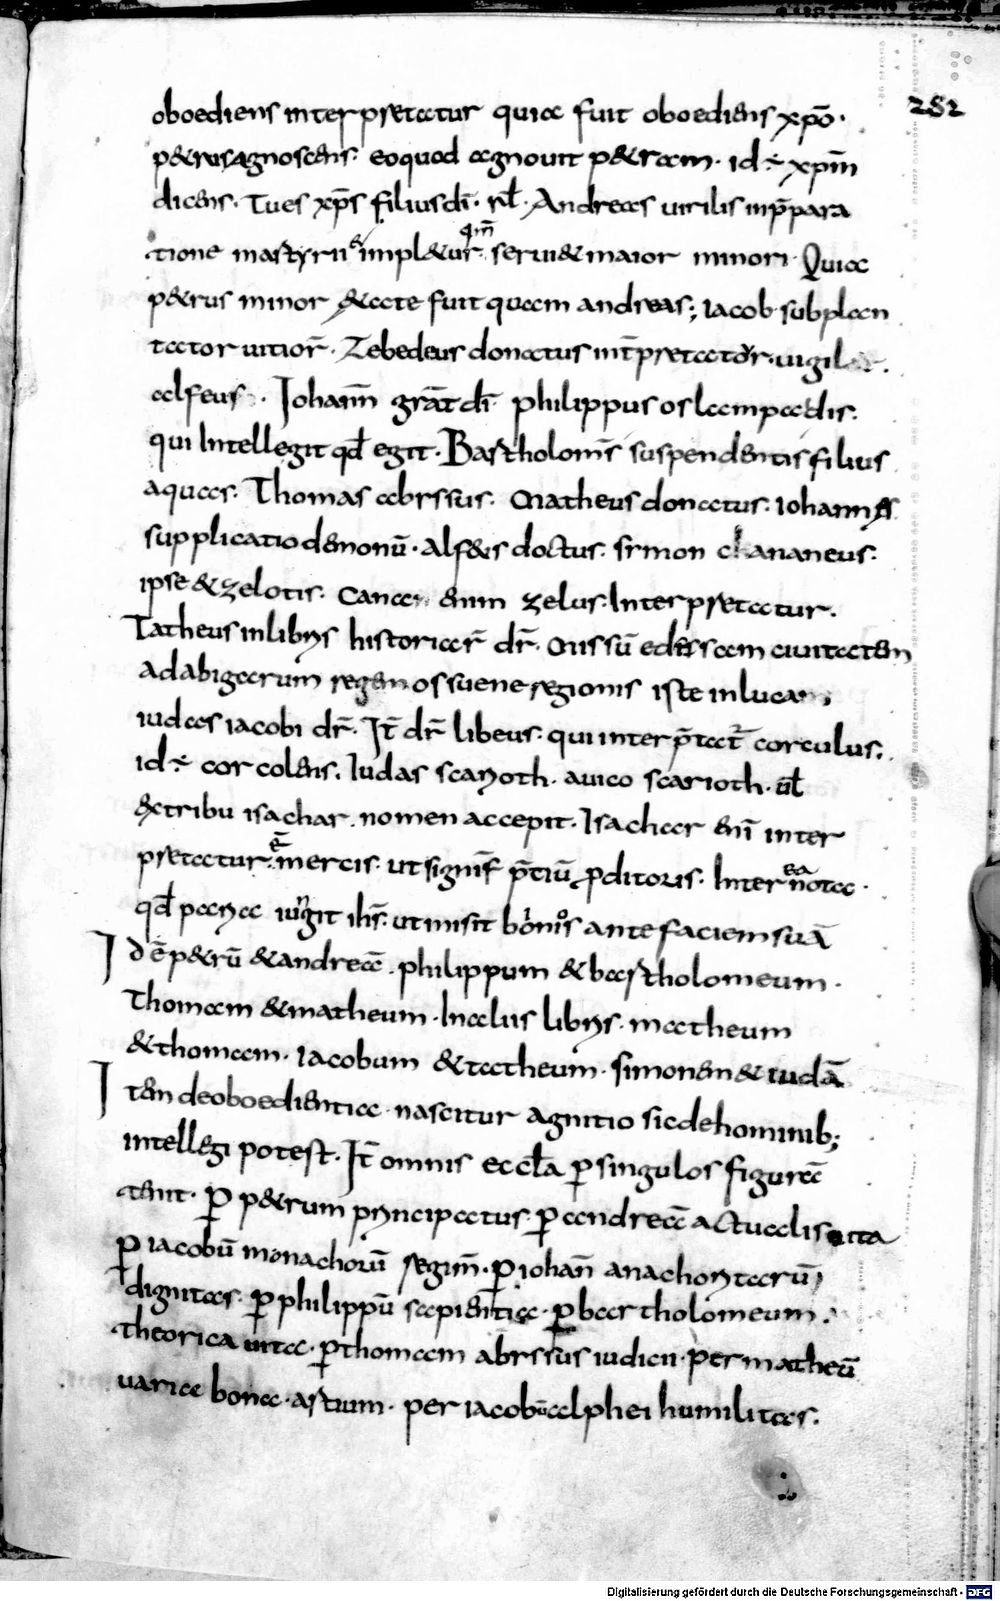 282
oboediens interpretatur quia fuit oboediens xpō·
petrus agnoscens· eo quod agnouit petram· id ÷ xpm̄
dicens· Tu es xp̄s filius dī· ł Andreas uirilis in p̄para
tione martyrii et impletur qm̄ seruiet maior minori· Quia
petrus minor aetate fuit quam andreas; iacob subplan
tator uitior̄· Zebedeus donatus int̄pretator· uigil
alfeus· Johann̄ grāt dī philippus os lampadis·
qui Intellegit qd̄ egit· Bartholom̄s suspendentis filius
aquas· Thomas abyssus· Matheus donatus· iohannes
supplicatio demonū· alfeus doctus· simon chananeus·
ipse et zelotis· Cana enim zelus· Interpretatur·
Tatheus in libris historiar̄ dr̄· missū edissam ciuitatem
ad abigarum regem ossuene regionis iste in luca
iudas iacobi dr̄· It̄ dr̄ libeus· qui interp̄tat̄ corculus;
id ÷ cor colens· Iudas scarioth· a uico scarioth· ul̄
ex tribu isachar· nomen accepit· Isachar enī inter
pretatur ē mercis· ut signif̄ p̄tiū proditoris· Inter ea nota·
qd̄ paria iungit ihs̄· ut misit binos ante faciem suā
Id ē petrū et andreā· philippum et bartholomeum·
Thomam et matheum· In aliis libris· matheum
et thomam· iacobum et tatheum· simonem et iudā
Iten de oboedientia nascitur agnitio sic de hominib;
intellegi potest· It̄ omnis eccl̄a p singulos figurā
tenit· p petrum principatus· p andreā actualis uita
p iacobū monachorū regim̄· p iohan̄ anachoritarū
dignitas· p philippū sapientiae· p bartholomeum·
theorica uita· p thomam abyssus iudicii· per matheū
uariae bonae· astium· per iacobū alphei humilitas·
Digitalisierung gefördert durch die Deutsche Forschungsgemeinschaft - DFG